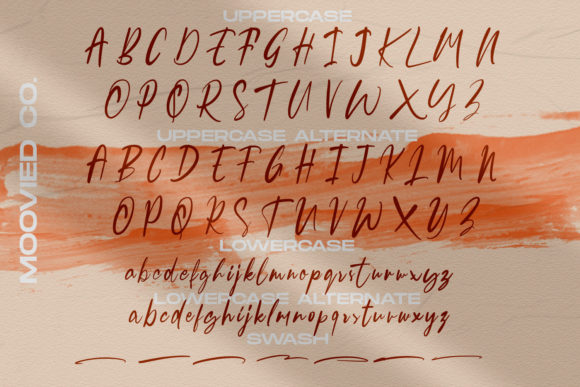 UPPERCASE
ABCDEFGHIJKLMN
OPQRSTUVWXYZ
UPPERCASE ALTERNATE
ABCDEFGHIJKLMN
OPQRSTUVWXYZ
LOWERCASE
abcdefghijklmnopqrstuvwxyz
LOWERCASE ALTERNATE
abcdefghijklmnopqrstuvwxyz
SWASH
MOOVIED CO.